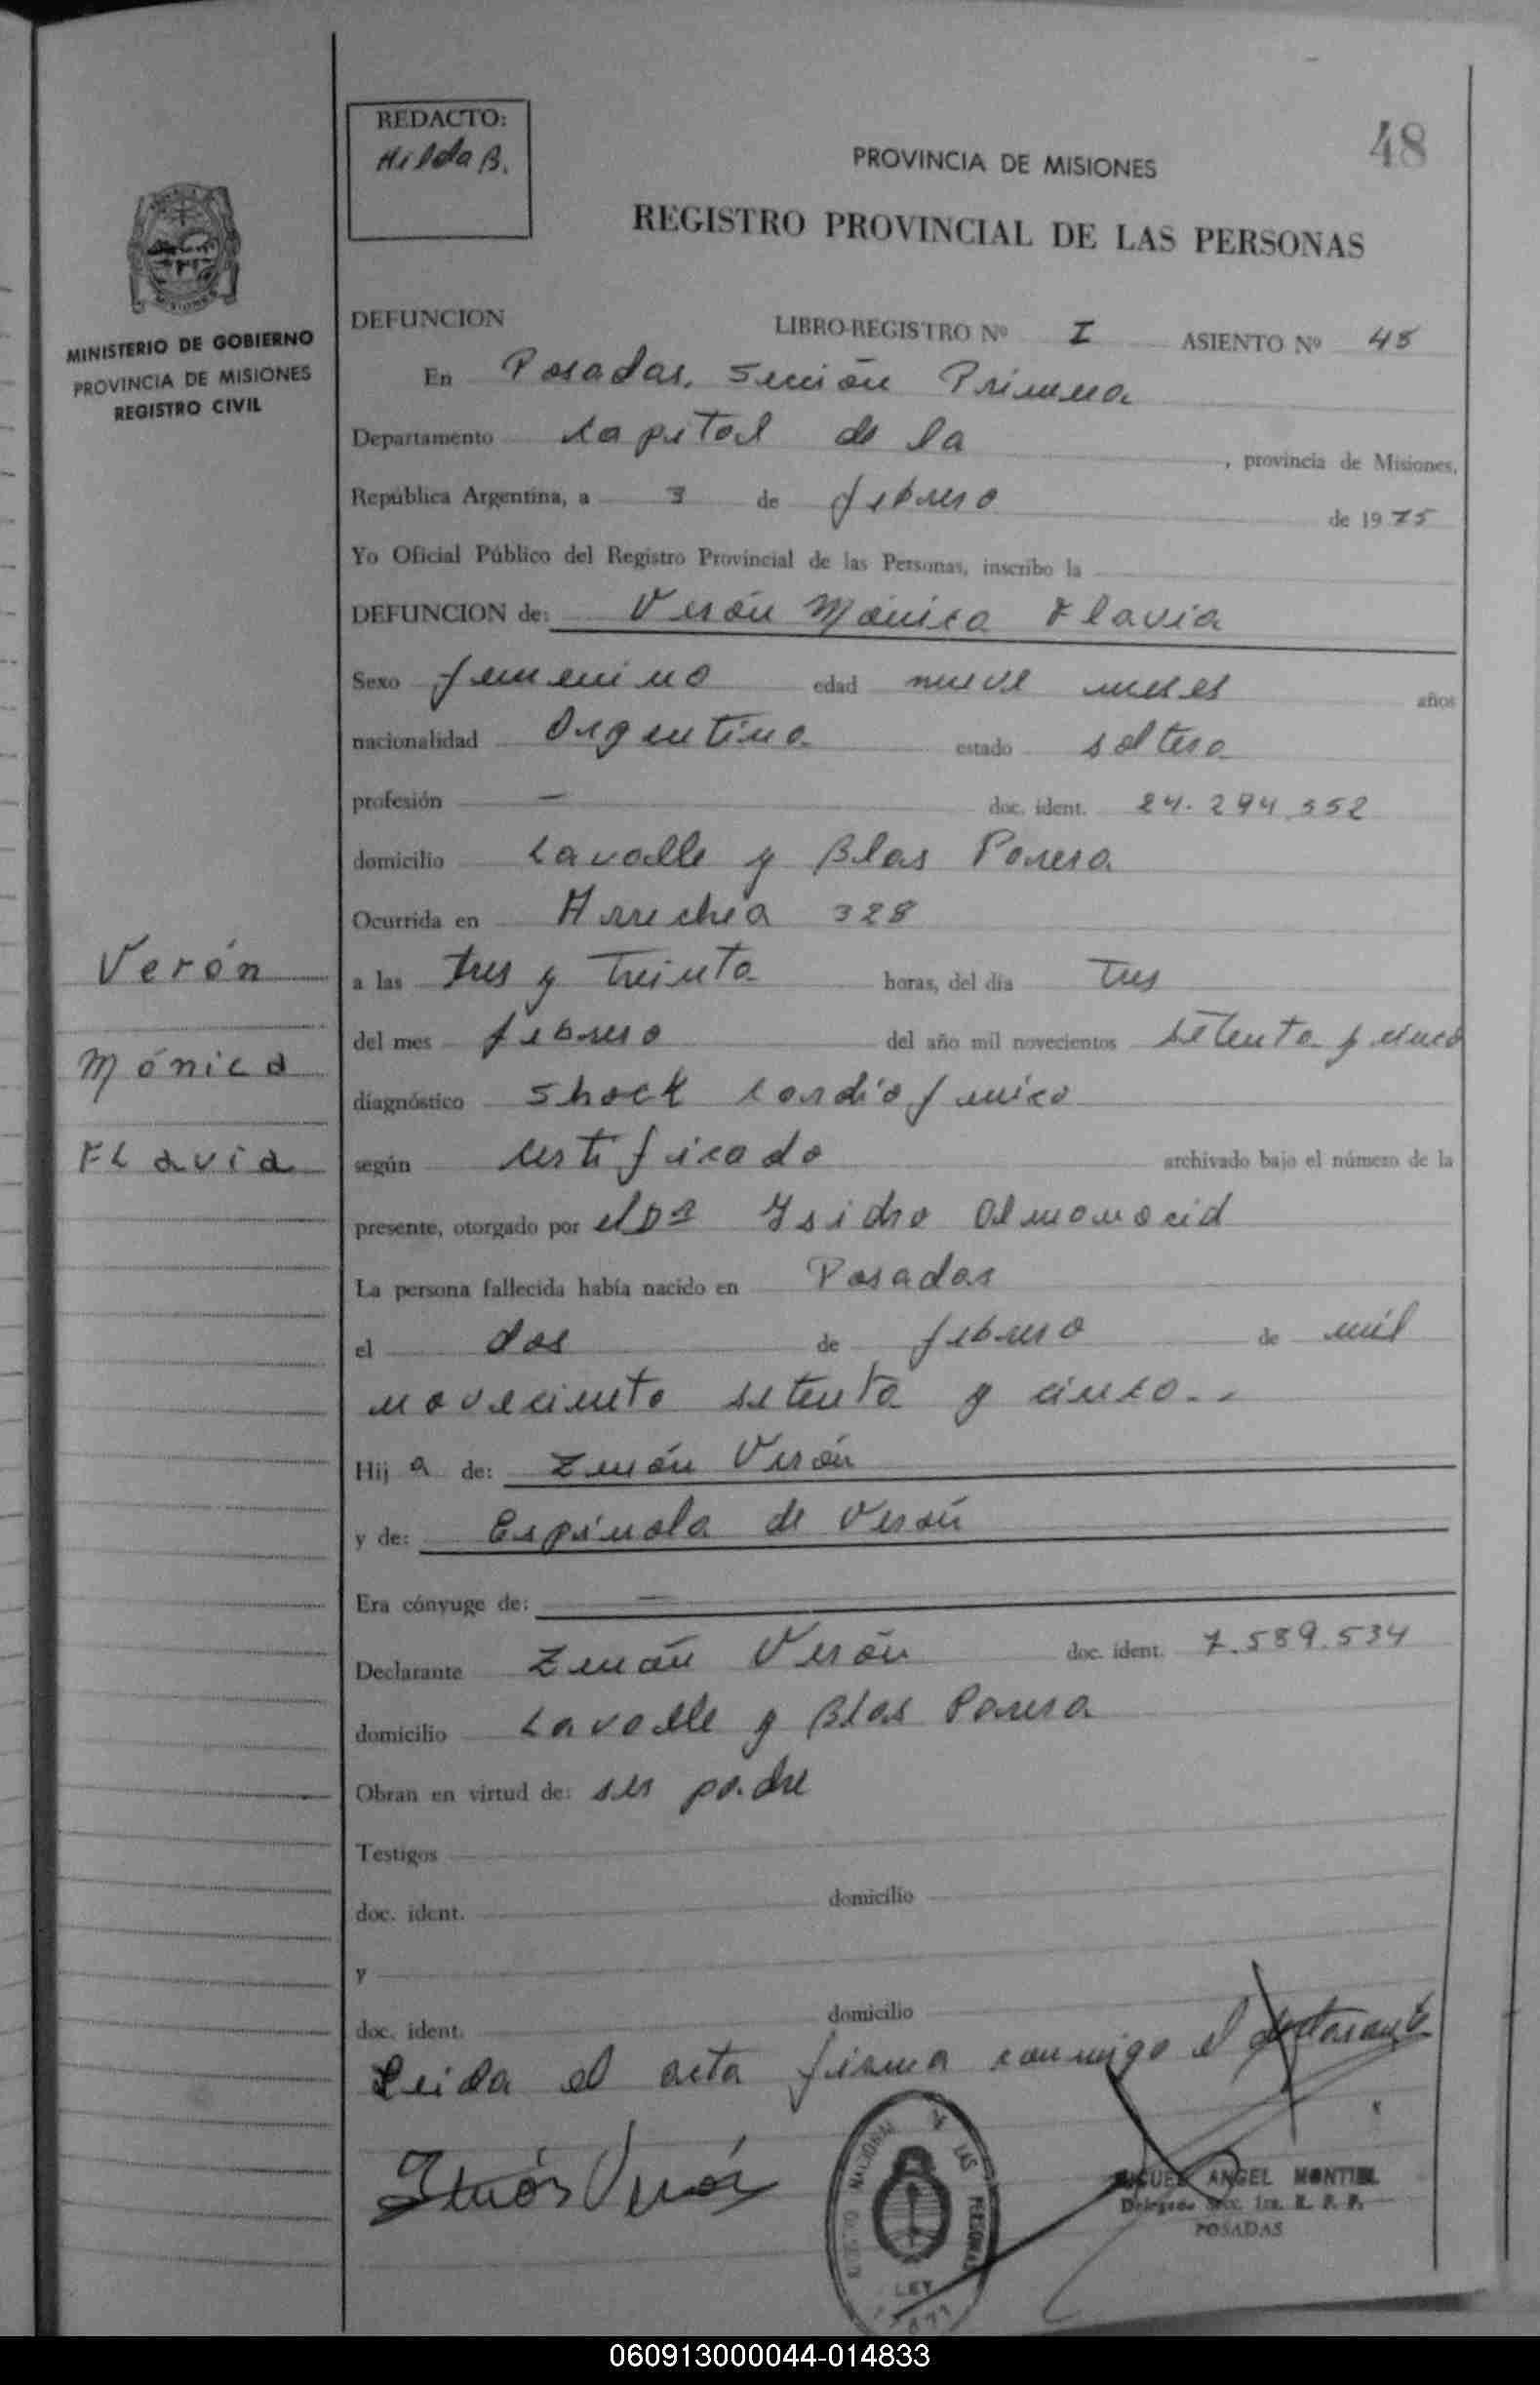 REDACTO:
Hilda B.
48
PROVINCIA DE MISIONES
REGISTRO PROVINCIAL DE LAS PERSONAS
MISIONES
MINISTERIO DE GOBIERNO
PROVINCIA DE MISIONES
REGISTRO CIVIL
DEFUNCION LIBRO-REGISTRO Nº I ASIENTO Nº 48
En Posadas, Sección Primera
Departamento Capital de la , provincia de Misiones,
República Argentina, a 3 de febrero de 1975
Yo Oficial Público del Registro Provincial de las Personas, inscribo la
DEFUNCION de: Verón Mónica Flavia
Sexo femenino edad nueve meses años
nacionalidad Argentina estado soltera
profesión — doc. ident. 24.294.352
domicilio Lavalle y Blas Parera
Ocurrida en Arrechea 328
a las tres y treinta horas, del día tres
del mes febrero del año mil novecientos setenta y cinco
diagnóstico Shock cardiogénico
según certificado archivado bajo el número de la
presente, otorgado por el Dr Isidro Almonacid
La persona fallecida había nacido en Posadas
el dos de febrero de mil
noveciento setenta y cinco.-
Hija de: Zenón Verón
y de: Espínola de Verón
Era cónyuge de: —
Declarante Zenón Verón doc. ident. 7.589.534
domicilio Lavalle y Blas Parera
Obran en virtud de: ser padre
Testigos
doc. ident. domicilio
y
doc. ident. domicilio
Leida el acta firma conmigo el declarante
Zenón Verón
REGISTRO NACIONAL DE LAS PERSONAS
LEY
MIGUEL ANGEL MONTIEL
Delegado Sec. 1ra. R. P. P.
POSADAS
Verón
Mónica
FLavia
060913000044-014833